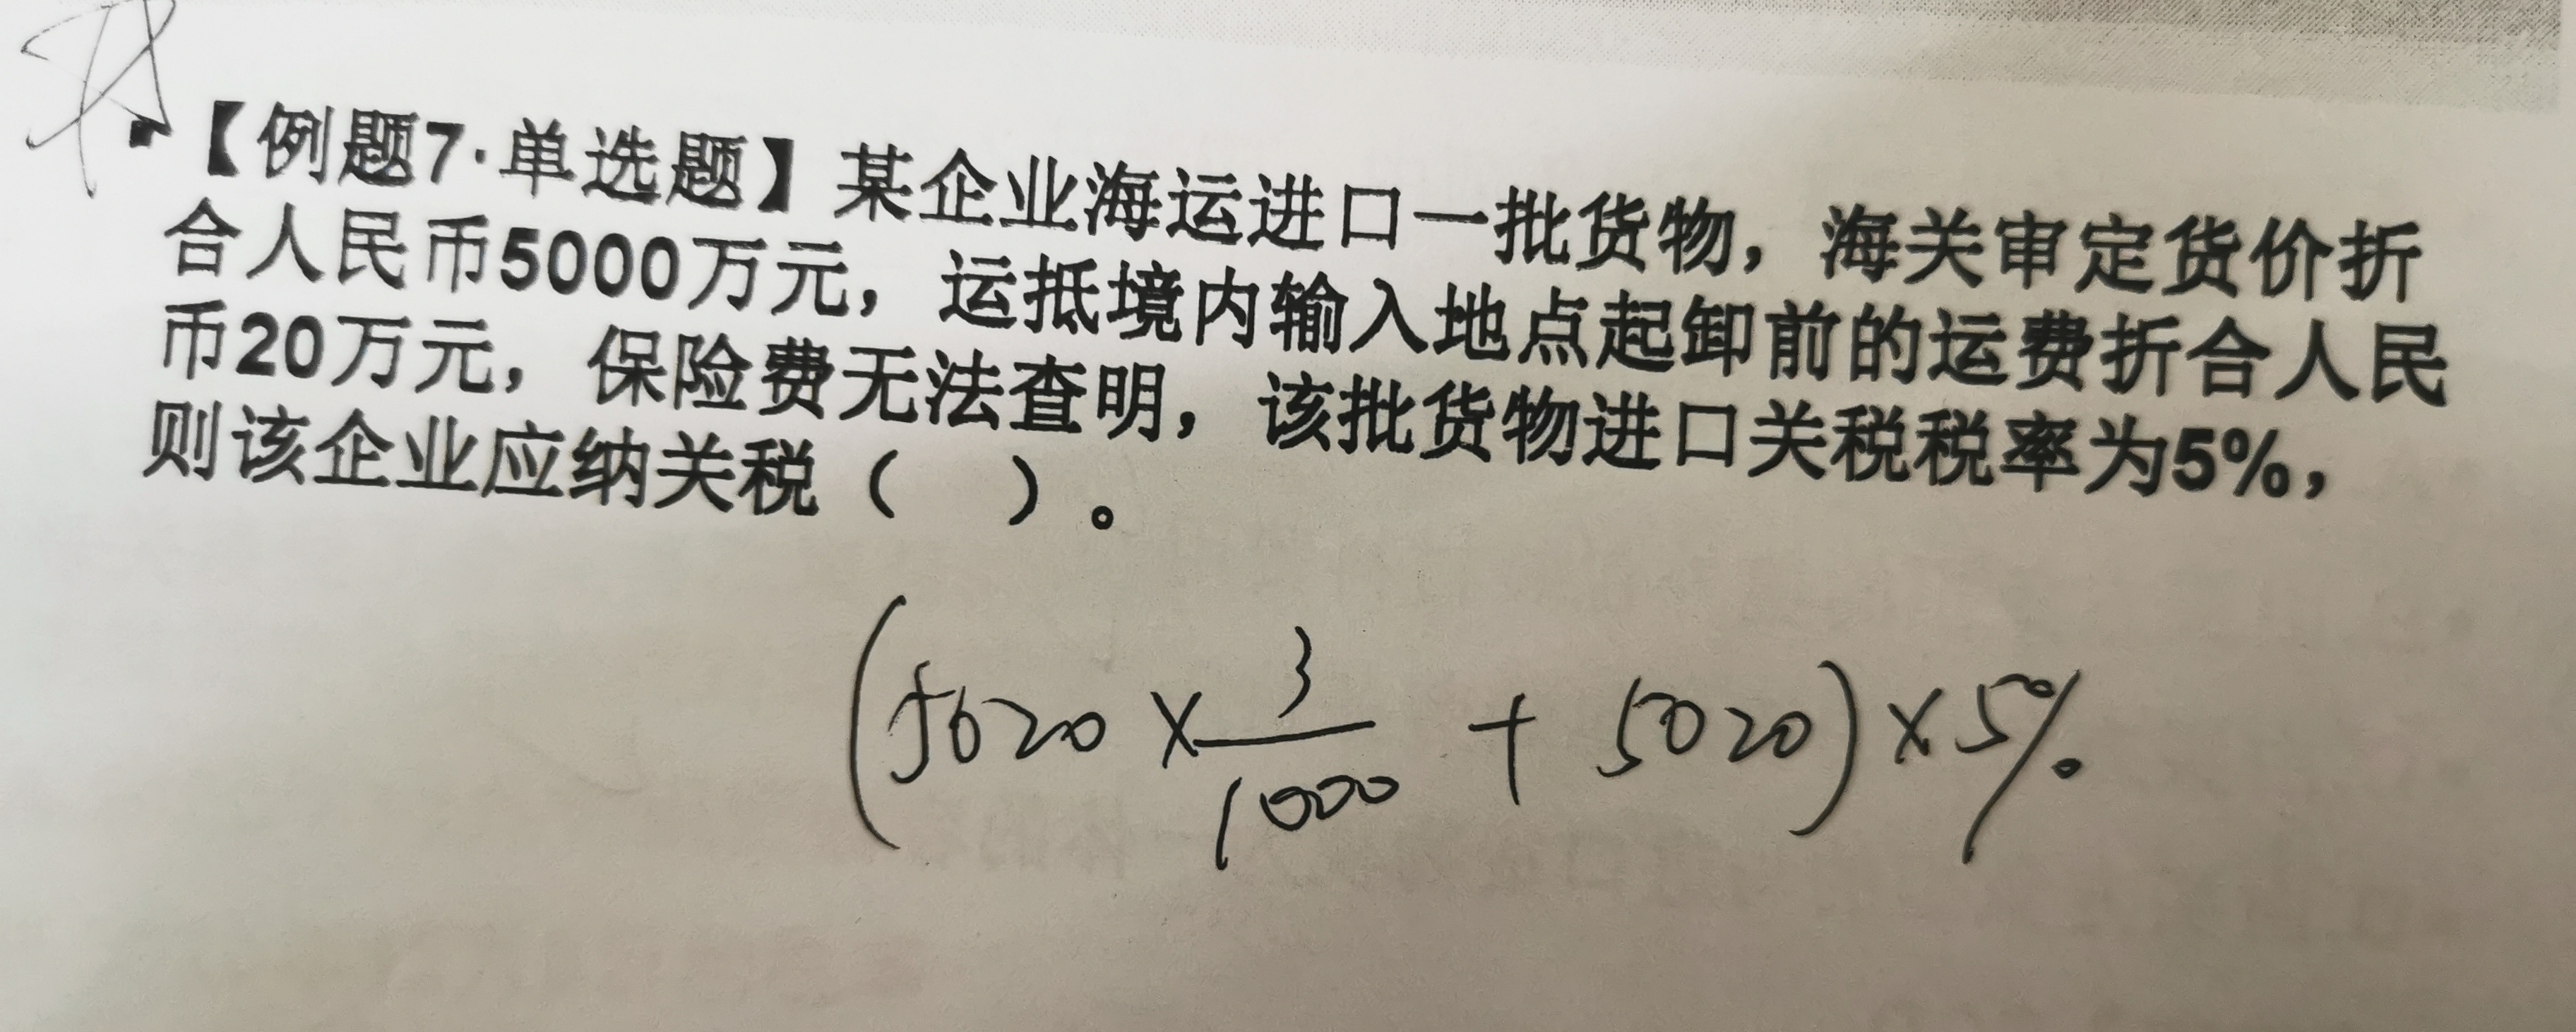 【例题7·单选题】某企业海运进口一批货物，海关审定货价折
合人民币5000万元，运抵境内输入地点起卸前的运费折合人民
币20万元，保险费无法查明，该批货物进口关税税率为5%，
则该企业应纳关税（　）。
(5020 × 3/1000 + 5020) × 5%